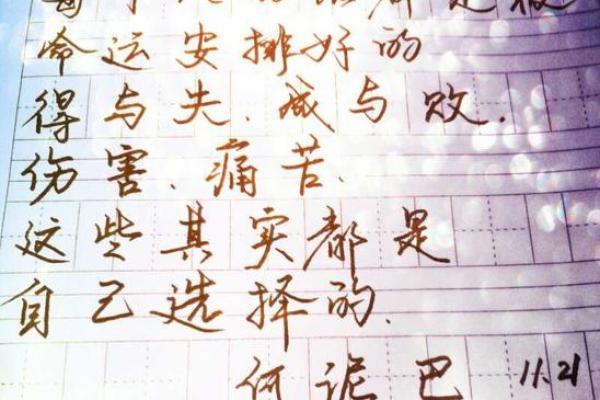 每都是被
命运安排好的
得与失、成与败、
伤害、痛苦、
这些其实都是
自己选择的、
何泥巴 11.21